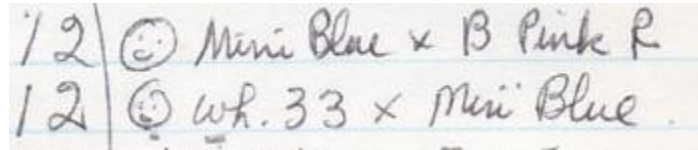 12 ☺ Mini Blue x B Pink R
12 ☺ Wh. 33 x Mini Blue.